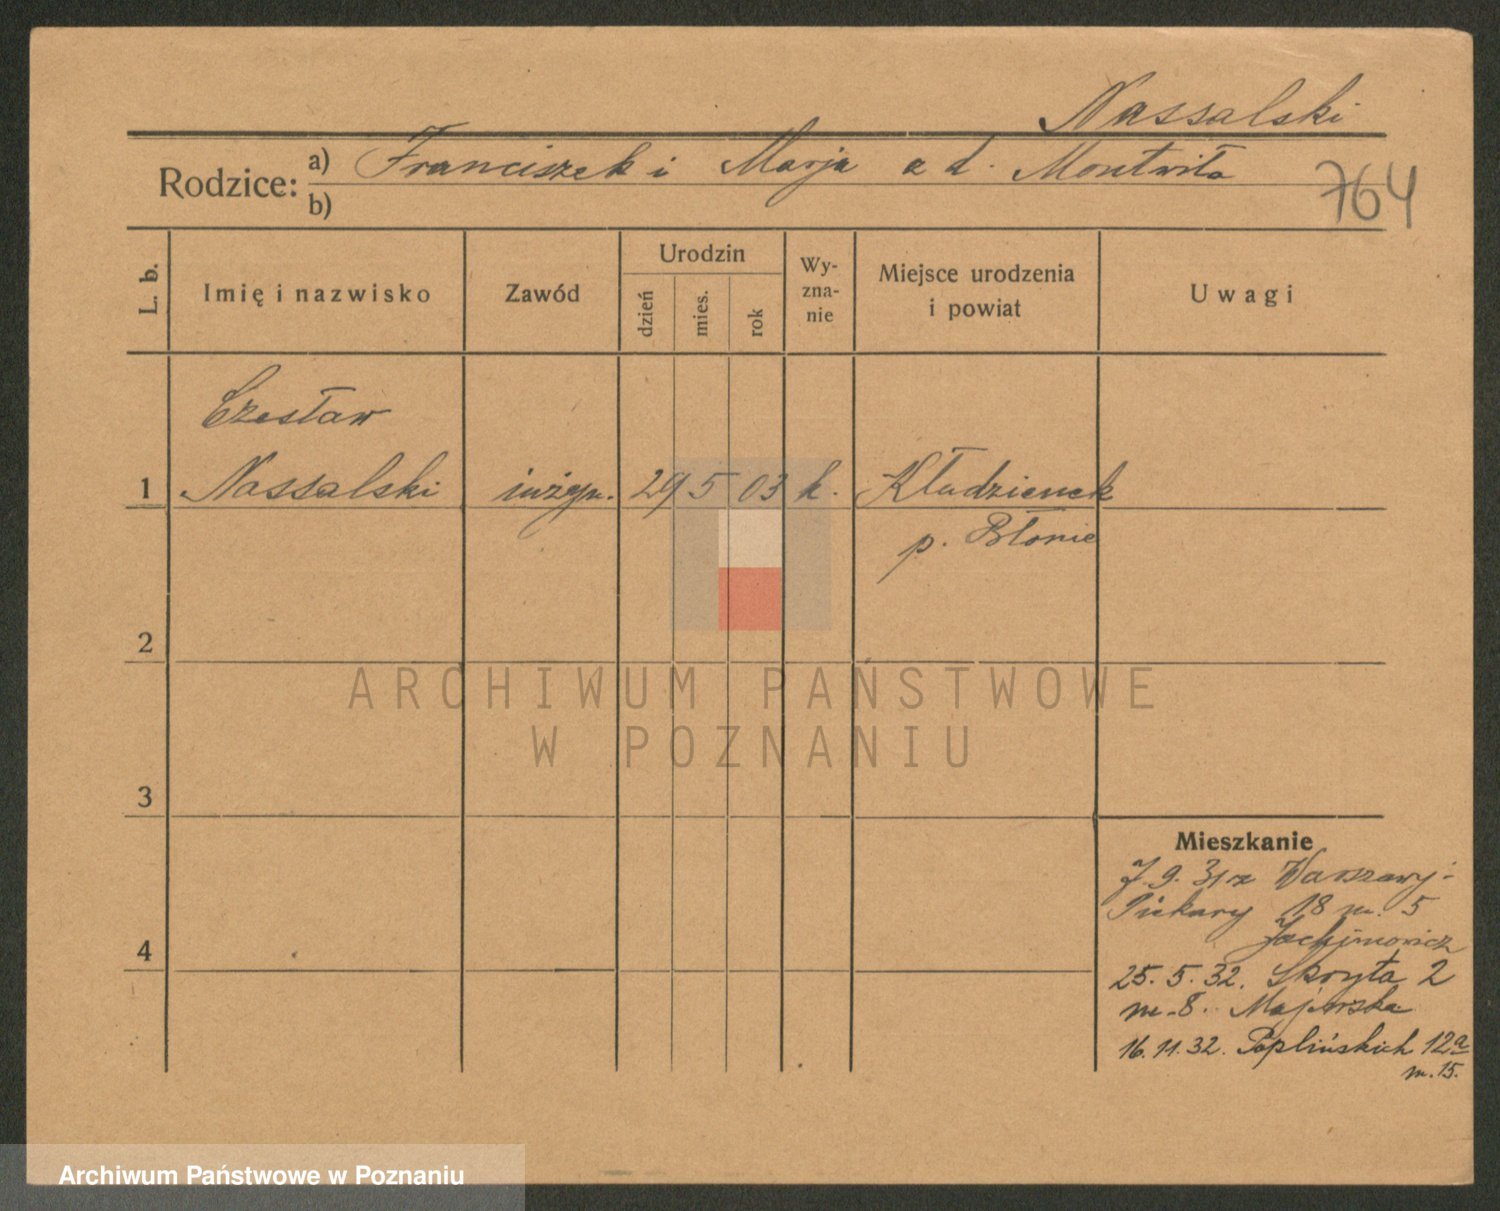 Nassalski
Rodzice: a) Franciszek i Marja a d. Montwiłł
b)
764
L. b.
Imię i nazwisko
Zawód
Urodzin
dzień
mies.
rok
Wy-
zna-
nie
Miejsce urodzenia
i powiat
Uwagi
Czesław
1 Nassalski inżyn. 29 5 03 k. Kłudzienek
p. Błonie
2
3
4
Mieszkanie
7.9.31 z Warszawy:
Piekary 18 m. 5
Jachimowicz
25.5.32. Skryta 2
m. 8. Majewska
16.11.32. Poplińskich 12a
m. 15.
ARCHIWUM PAŃSTWOWE
W POZNANIU
Archiwum Państwowe w Poznaniu